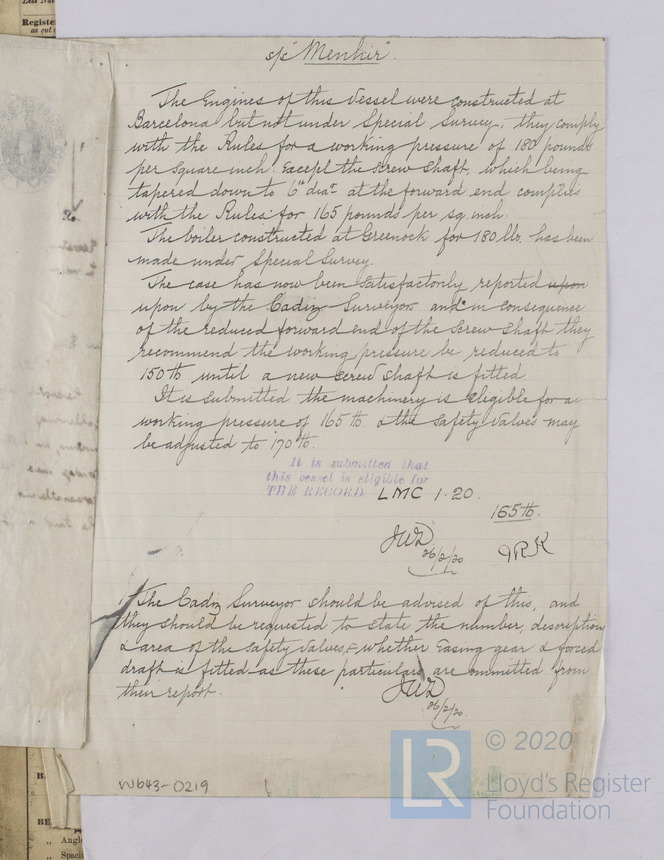 Register
as cut
s/s "Menkir".
The Engines of this Vessel were constructed at
Barcelona but not under Special Survey, they comply
with the Rules for a working pressure of 180 pounds
per square inch. Except the screw shaft, which being
tapered down to 6" diar at the forward end complies
with the Rules for 165 pounds per sq. inch.
The boiler constructed at Greenock for 180 lbs. has been
made under Special Survey.
The case has now been satisfactorily reported upon
upon by the Cadiz Surveyors and in consequence
of the reduced forward end of the screw shaft they
recommend the working pressure be reduced to
150 lb until a new screw shaft is fitted
It is submitted the machinery is eligible for a
working pressure of 165 lb. & the safety valves may
be adjusted to 170 lb.
It is submitted that
this vessel is eligible for
THE RECORD. LMC 1.20.
165 lb.
JWD
26/2/20
JRK
The Cadiz Surveyor should be advised of this, and
they should be requested to state the number, description
& area of the safety valves, & whether Easing gear & forced
draft is fitted as these particulars are ommitted from
their report.
JWD
26/2/20
© 2020
LR
Lloyd's Register
Foundation
W643-0219
B
BE
„ Angl
„ Spaci